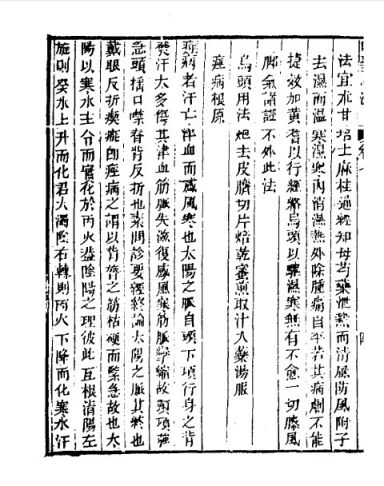 法宜朮甘培土麻桂通經知母芍藥泄熱而清風防風附子
去濕而溫寒濕寒內消濕熱外除腫痛自平若其病劇不能
捷效加黃耆以行經絡烏頭以驅濕寒無有不愈一切膝風
腳氣諸證不外此法
烏頭用法 炮去皮臍切片焙乾蜜煎取汁入藥湯服
痙病根原
痙病者汗亡津血而感風寒也太陽之脈自頭下項行身之背
發汗太多傷其津血筋脈失滋復感風寒筋脈攣縮故頭項強
急頭搖口噤脊背反折也素問診要經終論太陽之脈其終也
戴眼反折瘈瘲即痙病之謂以背膂之筋枯硬而緊急故也太
陽以寒水主令而實化於丙火蓋陰陽之理彼此互根清陽左
旋則癸水上升而化君火濁陰右轉則丙火下降而化寒水汗